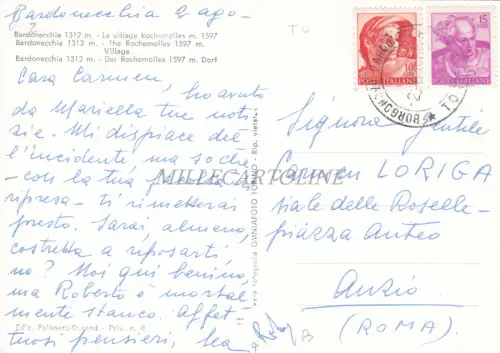 Bardonecchia 2 ago-
Bardonecchia 1312 m. - Le village Rochemolles m. 1597
Bardonecchia 1312 m. - The Rochemolles 1597 m.
Village
Bardonecchia 1312 m. - Der Rochemolles 1597 m. Dorf
Cara Carmen, ho avuto
da Mariella tue noti
zie. Mi dispiace del
l'incidente ma so che
- con la tua pronta
ripresa - ti rimetterai
presto. Sarai, almeno,
costretta a riposarti,
no? Noi qui benino,
ma Roberto è mortal
mente stanco. Affet-
tuosi pensieri, Lea
e Rob
Ediz. Pallissero-Durand - Priv. n. 8
Vera fotografia OMNIAFOTO TORINO - Rip. vietata
MILLECARTOLINE
TO
POSTE ITALIANE
L. 10
15 LIRE
POSTE ITALIANE
Signora Gentile
Carmen LORIGA
viale delle Roselle-
piazza Anteo
Anzio
(ROMA)